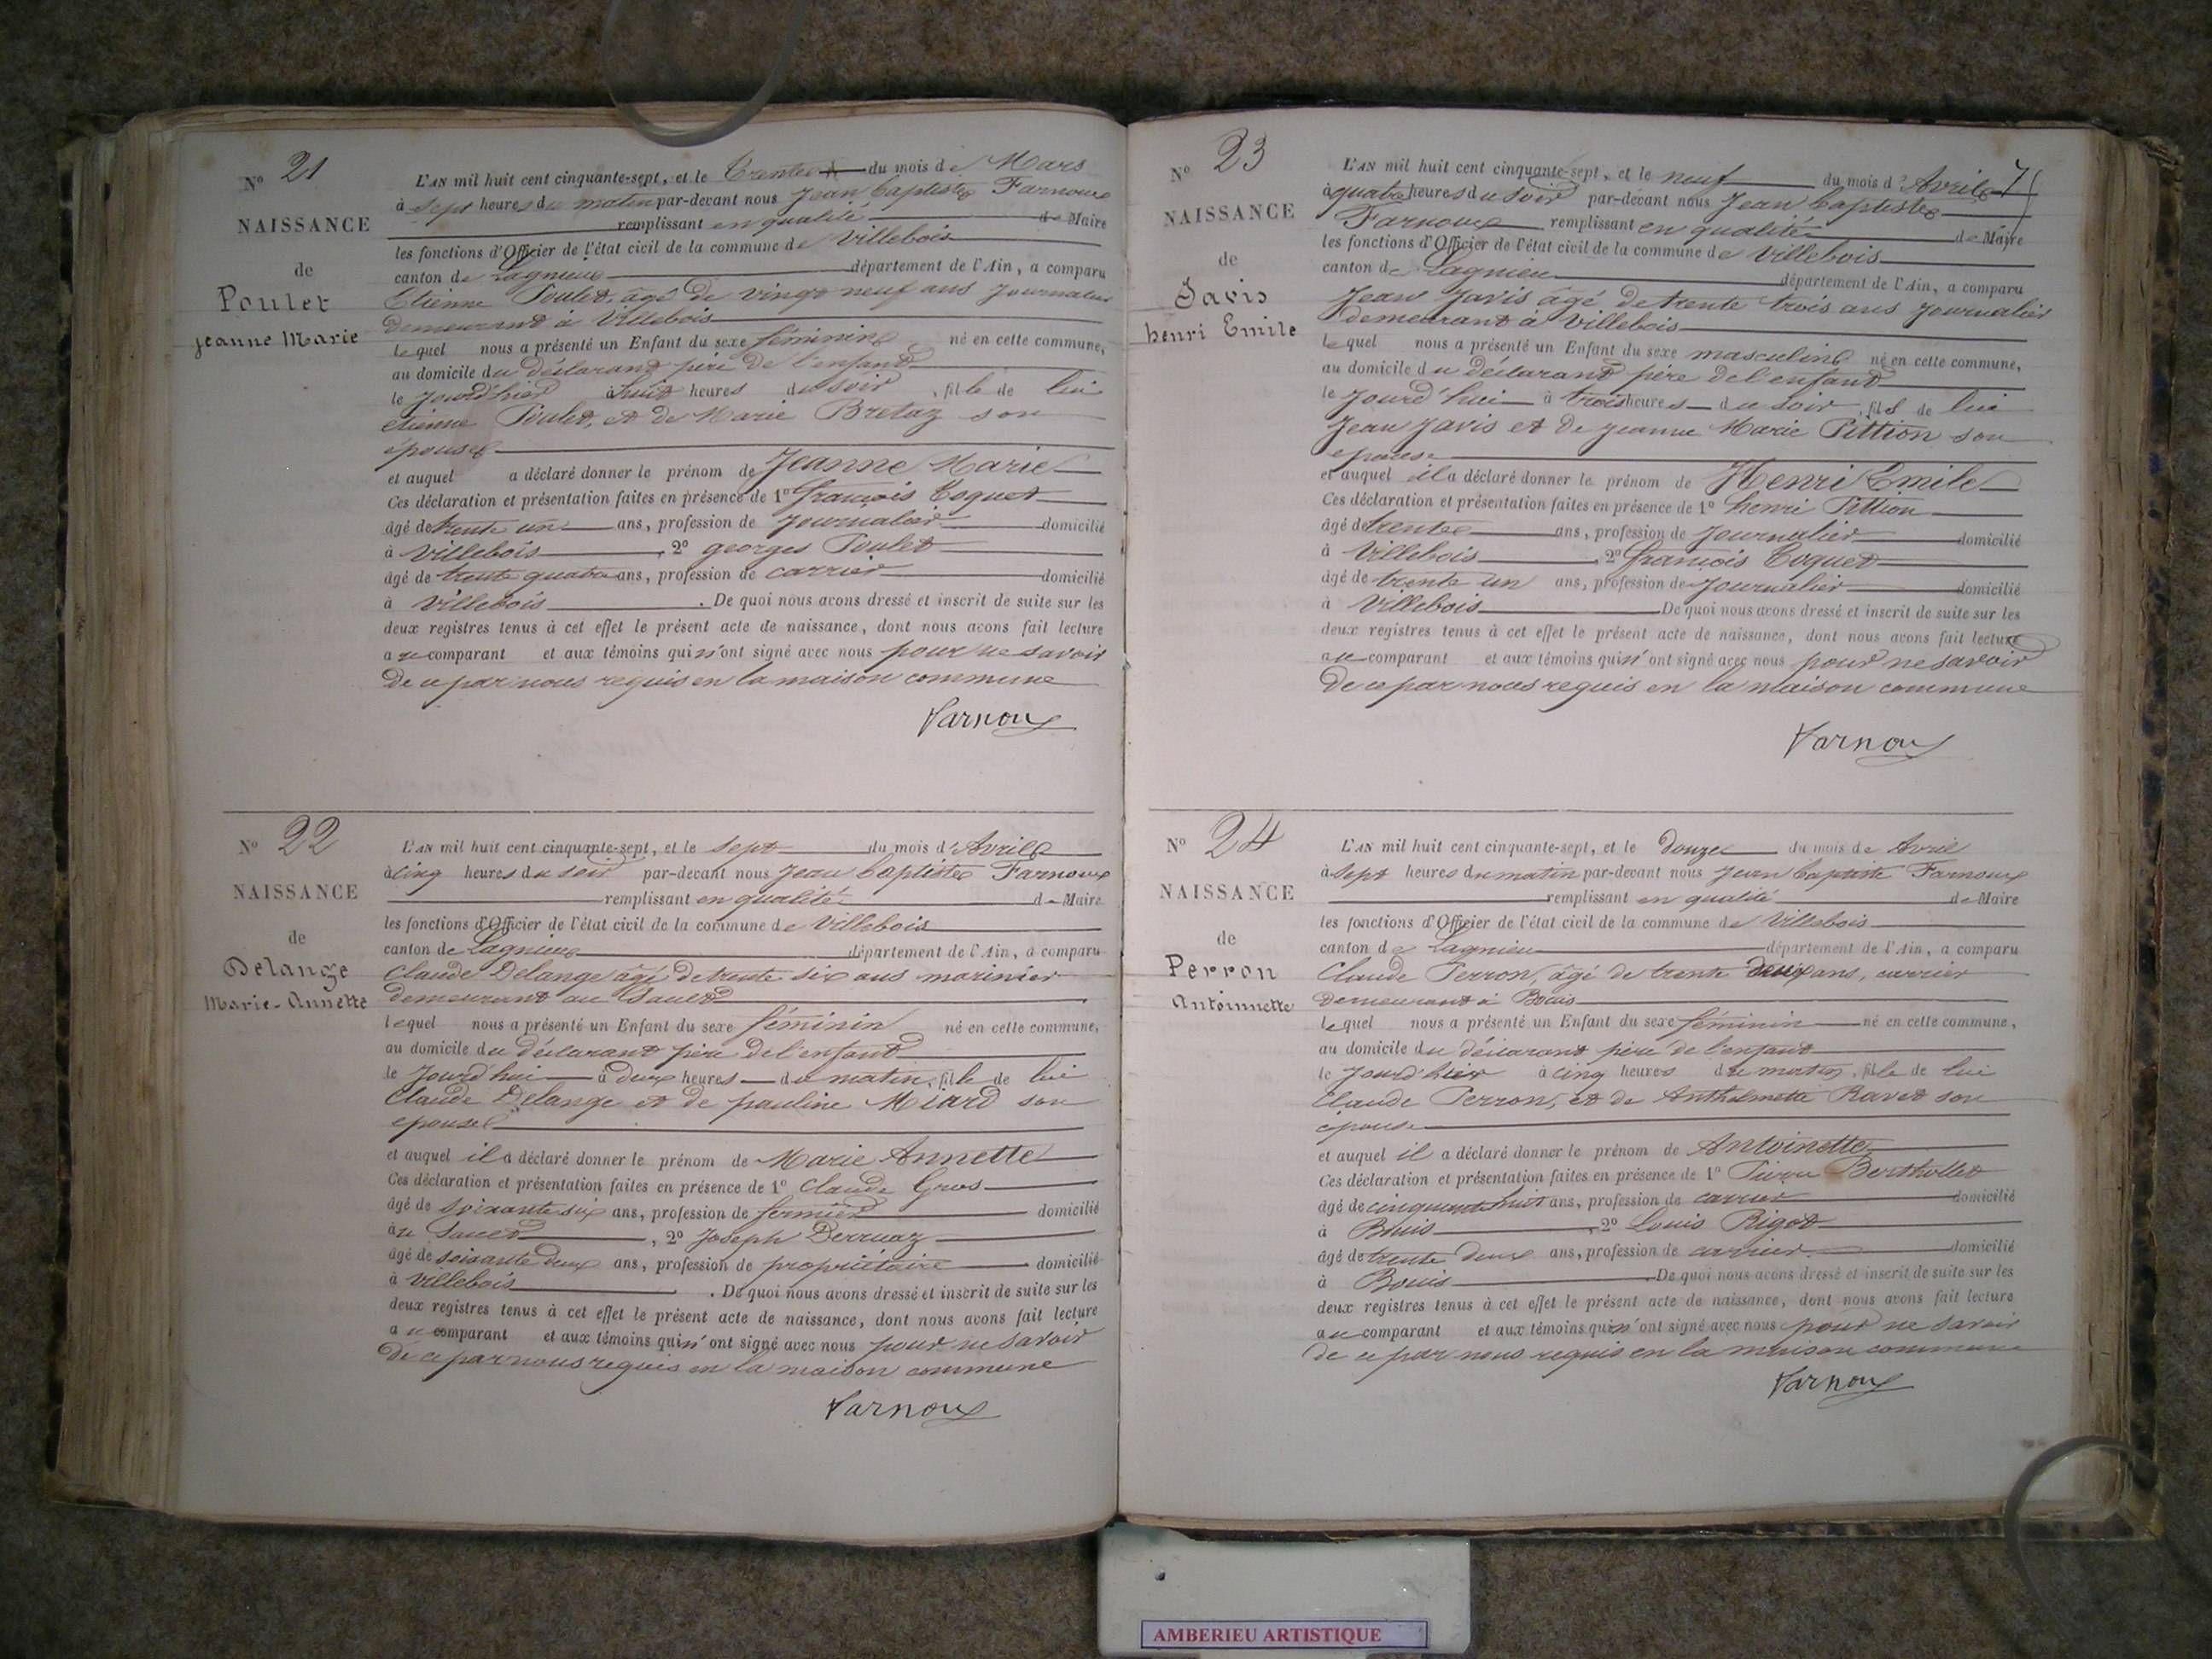 N° 21
NAISSANCE
de
Poulet
Jeanne Marie
L'AN mil huit cent cinquante-sept, et le Trente du mois de Mars
à sept heures du matin par-devant nous Jean baptiste Farnoux
remplissant en qualité de Maire
les fonctions d'Officier de l'état civil de la commune de Villebois
canton de Lagnieu département de l'Ain, a comparu
Etienne Poulet, âgé de vingt neuf ans journalier
demeurant à Villebois
lequel nous a présenté un Enfant du sexe féminin né en cette commune,
au domicile du déclarant père de l'enfant
le jourd'hier à huit heures du soir, fille de lui
etienne Poulet, et de Marie Bretaz son
épouse
et auquel a déclaré donner le prénom de Jeanne Marie
Ces déclaration et présentation faites en présence de 1° françois Coquet
âgé de trente un ans, profession de journalier domicilié
à Villebois, 2° georges Poulet
âgé de trente quatre ans, profession de carrier domicilié
à Villebois. De quoi nous avons dressé et inscrit de suite sur les
deux registres tenus à cet effet le présent acte de naissance, dont nous avons fait lecture
au comparant et aux témoins qui n'ont signé avec nous pour ne savoir
de ce par nous requis en la maison commune
Farnoux
N° 22
NAISSANCE
de
Delange
Marie-Annette
L'AN mil huit cent cinquante-sept, et le sept du mois d'Avril
à cinq heures du soir par-devant nous Jean baptiste Farnoux
remplissant en qualité de Maire
les fonctions d'Officier de l'état civil de la commune de Villebois
canton de Lagnieu département de l'Ain, a comparu
Claude Delange âgé de trente six ans marinier
demeurant au Sault
lequel nous a présenté un Enfant du sexe féminin né en cette commune,
au domicile du déclarant père de l'enfant
le jourd'hui à deux heures du matin, fille de lui
Claude Delange et de pauline Miard son
epouse
et auquel il a déclaré donner le prénom de Marie Annette
Ces déclaration et présentation faites en présence de 1° Claude Gros
âgé de soixante six ans, profession de fermier domicilié
au Sault, 2° Joseph Derruaz
âgé de soixante deux ans, profession de propriétaire domicilié
à Villebois. De quoi nous avons dressé et inscrit de suite sur les
deux registres tenus à cet effet le présent acte de naissance, dont nous avons fait lecture
au comparant et aux témoins qui n'ont signé avec nous pour ne savoir
de ce par nous requis en la maison commune
Farnoux
N° 23
NAISSANCE
de
Javis
henri Emile
L'AN mil huit cent cinquante-sept, et le neuf du mois d'Avril 7
à quatre heures du soir par-devant nous Jean baptiste
Farnoux remplissant en qualité de Maire
les fonctions d'Officier de l'état civil de la commune de Villebois
canton de Lagnieu département de l'Ain, a comparu
Jean Javis âgé de trente trois ans journalier
demeurant à Villebois
lequel nous a présenté un Enfant du sexe masculin né en cette commune,
au domicile du déclarant père de l'enfant
le jourd'hui à trois heures du soir, fils de lui
Jean Javis et de Jeanne Marie Pittion son
epouse
et auquel il a déclaré donner le prénom de Henri Emile
Ces déclaration et présentation faites en présence de 1° henri Pittion
âgé de trente ans, profession de journalier domicilié
à Villebois, 2° françois Coquet
âgé de trente un ans, profession de journalier domicilié
à Villebois De quoi nous avons dressé et inscrit de suite sur les
deux registres tenus à cet effet le présent acte de naissance, dont nous avons fait lecture
au comparant et aux témoins qui n'ont signé avec nous pour ne savoir
de ce par nous requis en la maison commune
Farnoux
N° 24
NAISSANCE
de
Perron
Antoinnette
L'AN mil huit cent cinquante-sept, et le douze du mois de Avril
à sept heures du matin par-devant nous Jean baptiste Farnoux
remplissant en qualité de Maire
les fonctions d'Officier de l'état civil de la commune de Villebois
canton de Lagnieu département de l'Ain, a comparu
Claude Perron, âgé de trente deux ans, carrier
demeurant à Bouis
lequel nous a présenté un Enfant du sexe féminin né en cette commune,
au domicile du déclarant père de l'enfant
le jourd'hier à cinq heures du matin, fille de lui
Claude Perron, et de Anthelmette Ravet son
epouse
et auquel il a déclaré donner le prénom de Antoinette
Ces déclaration et présentation faites en présence de 1° Pierre Berthollet
âgé de cinquante huit ans, profession de carrier domicilié
à Bouis, 2° Louis Rigot
âgé de trente deux ans, profession de carrier domicilié
à Bouis. De quoi nous avons dressé et inscrit de suite sur les
deux registres tenus à cet effet le présent acte de naissance, dont nous avons fait lecture
au comparant et aux témoins qui n'ont signé avec nous pour ne savoir
de ce par nous requis en la maison commune
Farnoux
AMBERIEU ARTISTIQUE